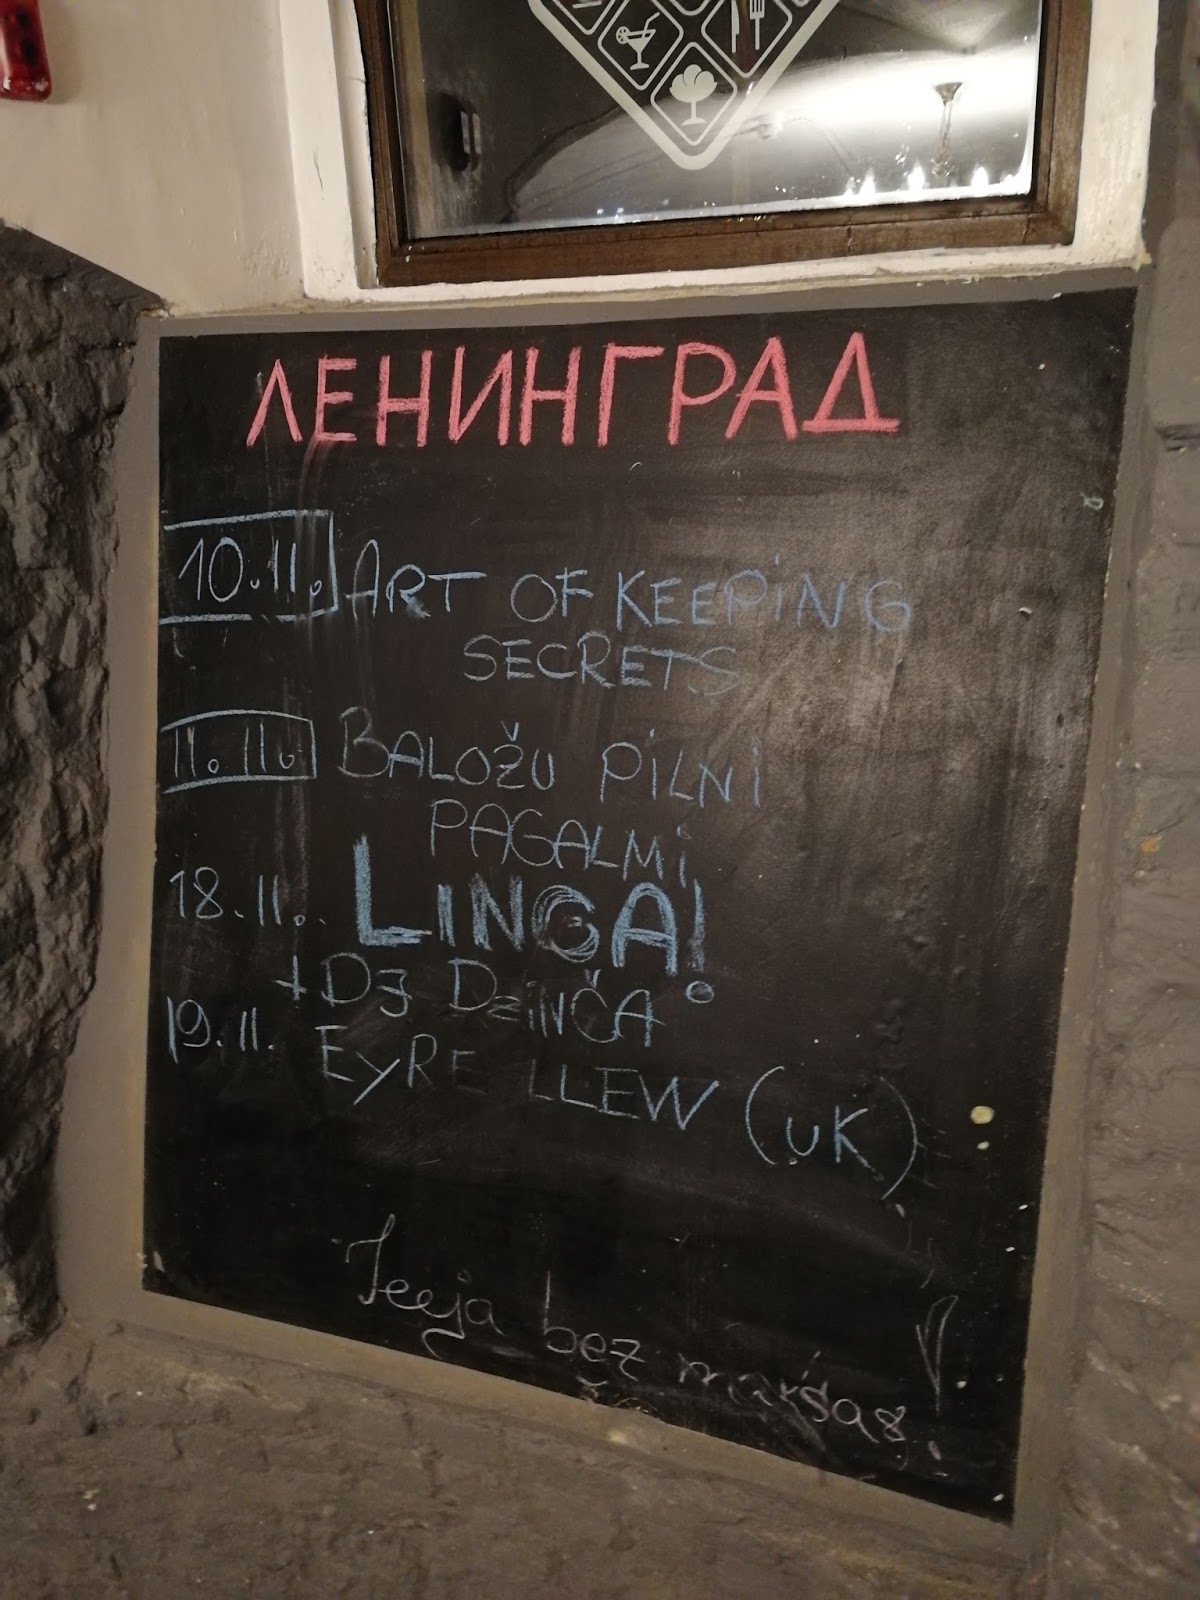 ЛЕНИНГРАД
10.11. ART OF KEEPING
SECRETS
11.11. BALOŽU PILNI
PAGALMI
18.11. LINGA!
+ DJ DZINČA
19.11. EYRE LLEW (UK)
Ieeja bez maksas!